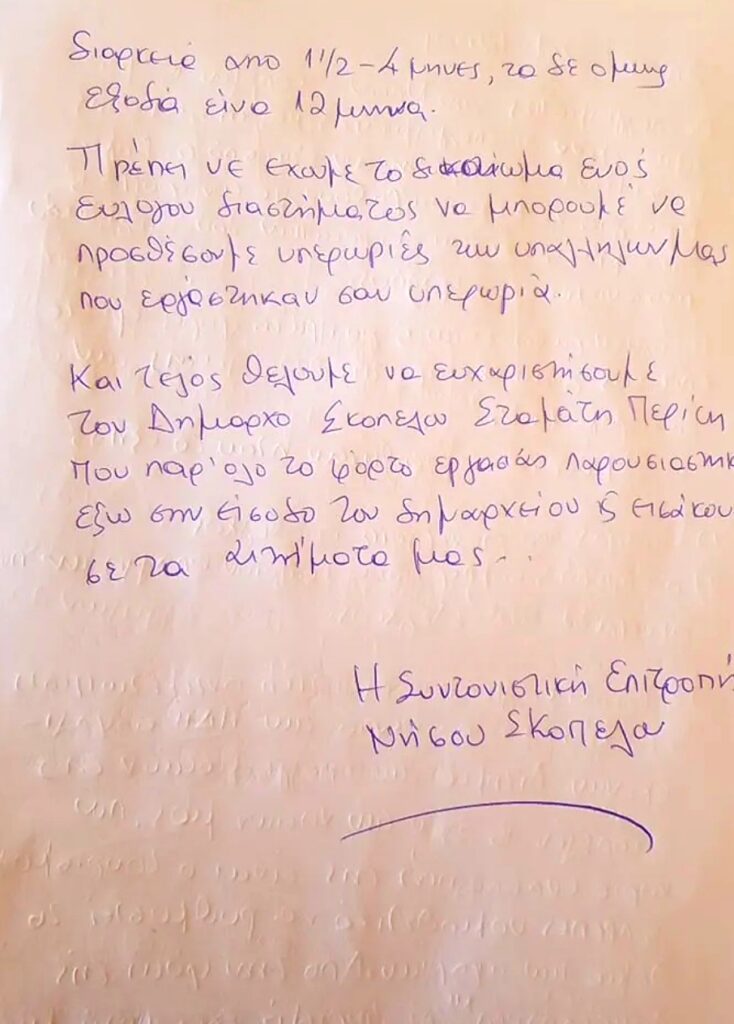 διαρκεια απο 1 1/2 - 4 μηνες, τα δε ομως
εξοδα είνα 12 μηνα.
Πρέπει νε εχωμε το δικαίωμα ενος
ευλογου διαστήματος να μπορουμέ να
προσθέσουμε υπερωριές των υπαλληλων μας
που εργάστηκαν σαν υπερωρια.
Και τελος θελουμε να ευχαριστήσουμε
τον Δημαρχο Σκοπελω Σταμάτη Περίση
που παρ' ολο το φόρτο εργασιάς παρουσιαστηκ
εξω στην είσοδο του δημαρχείου κ εισάκου
σε τα αιτήματα μας...
Η Συντονιστική Επιτροπή
Νήσου Σκοπελο